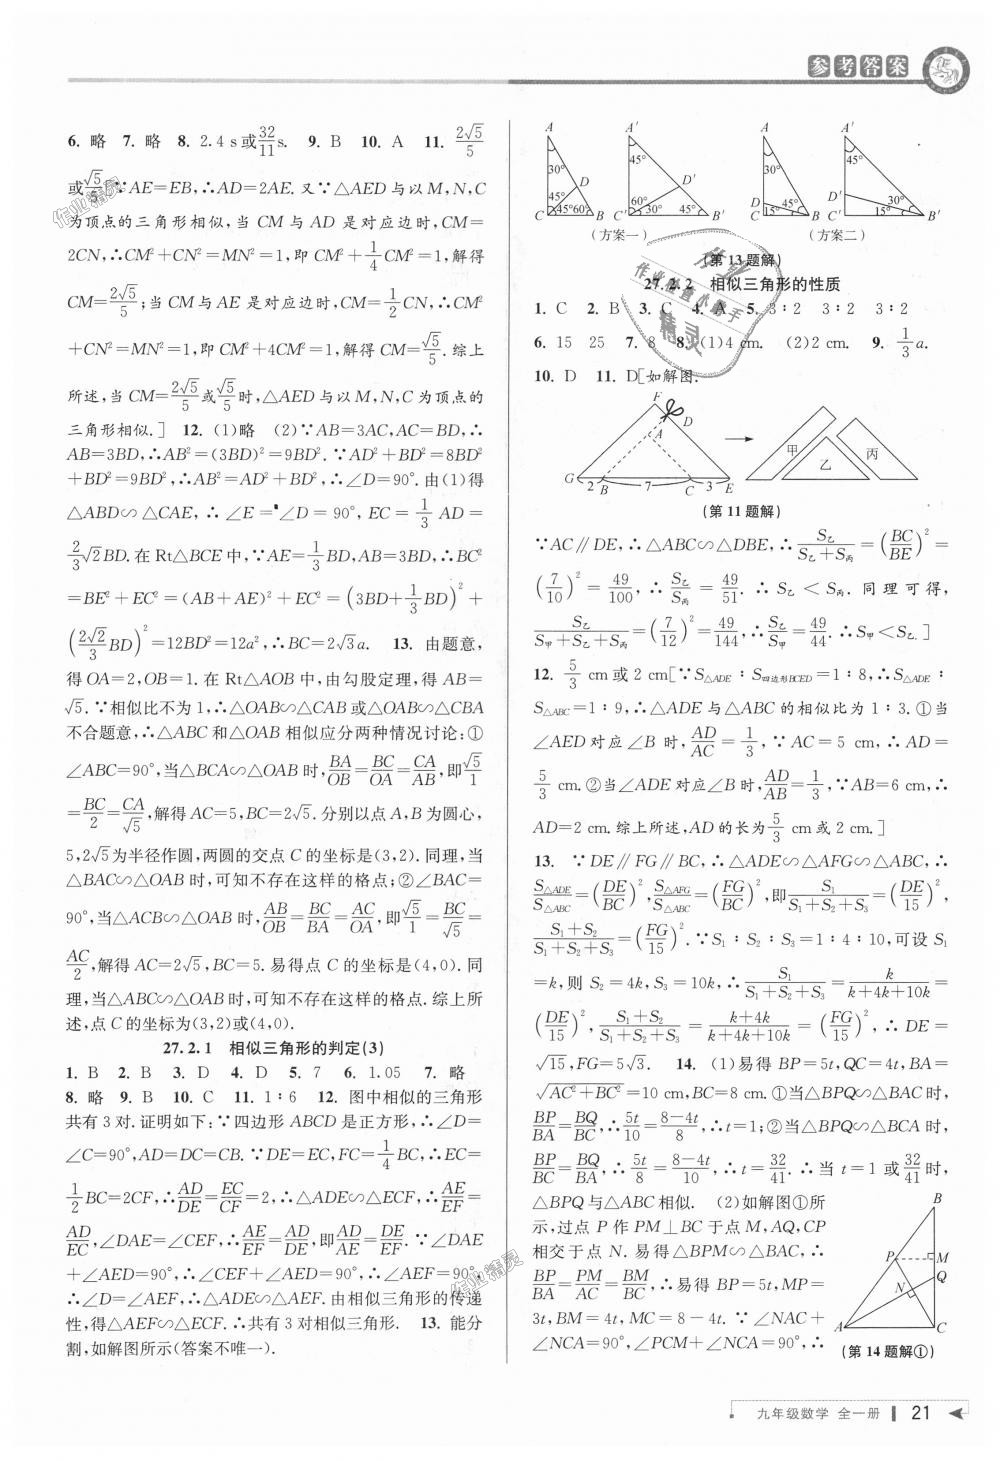 参考答案
6. 略 7. 略 8. 2.4 s或32/11 s. 9. B 10. A 11. 2√5/5
或√5/5[∵AE=EB,∴AD=2AE.又∵△AED与以M,N,C
为顶点的三角形相似,当CM与AD是对应边时,CM=
2CN,∴CM²+CN²=MN²=1,即CM²+1/4CM²=1,解得
CM=2√5/5;当CM与AE是对应边时,CM=1/2CN,∴CM²
+CN²=MN²=1,即CM²+4CM²=1,解得CM=√5/5.综上
所述,当CM=2√5/5或√5/5时,△AED与以M,N,C为顶点的
三角形相似.] 12. (1)略 (2)∵AB=3AC,AC=BD,∴
AB=3BD,∴AB²=(3BD)²=9BD².∵AD²+BD²=8BD²
+BD²=9BD²,∴AB²=AD²+BD²,∴∠D=90°.由(1)得
△ABD∽△CAE,∴∠E=∠D=90°,EC=1/3AD=
2/3√2BD.在Rt△BCE中,∵AE=1/3BD,AB=3BD,∴BC²
=BE²+EC²=(AB+AE)²+EC²=(3BD+1/3BD)²+
(2√2/3BD)²=12BD²=12a²,∴BC=2√3a. 13. 由题意,
得OA=2,OB=1.在Rt△AOB中,由勾股定理,得AB=
√5.∵相似比不为1,∴△OAB∽△CAB或△OAB∽△CBA
不合题意,∴△ABC和△OAB相似应分两种情况讨论:①
∠ABC=90°,当△BCA∽△OAB时,BA/OB=BC/OA=CA/AB,即√5/1
=BC/2=CA/√5,解得AC=5,BC=2√5.分别以点A,B为圆心,
5,2√5为半径作圆,两圆的交点C的坐标是(3,2).同理,当
△BAC∽△OAB时,可知不存在这样的格点;②∠BAC=
90°,当△ACB∽△OAB时,AB/OB=BC/BA=AC/OA,即√5/1=BC/√5=
AC/2,解得AC=2√5,BC=5.易得点C的坐标是(4,0).同
理,当△ABC∽△OAB时,可知不存在这样的格点.综上所
述,点C的坐标为(3,2)或(4,0).
27.2.1 相似三角形的判定(3)
1. B 2. B 3. D 4. D 5. 7 6. 1.05 7. 略
8. 略 9. B 10. C 11. 1∶6 12. 图中相似的三角形
共有3对.证明如下:∵四边形ABCD是正方形,∴∠D=
∠C=90°,AD=DC=CB.∵DE=EC,FC=1/4BC,∴EC=
1/2BC=2CF,∴AD/DE=EC/CF=2,∴△ADE∽△ECF,∴AE/EF=
AD/EC,∠DAE=∠CEF,∴AE/EF=AD/DE,即AD/AE=DE/EF.∵∠DAE
+∠AED=90°,∴∠CEF+∠AED=90°,∴∠AEF=90°,
∴∠D=∠AEF,∴△ADE∽△AEF.由相似三角形的传递
性,得△AEF∽△ECF.∴共有3对相似三角形. 13. 能分
割,如解图所示(答案不唯一).
A A′ A A′
30° 45° 30° 45°
D D′
45° 45° 60° 60° 30° 45° D 15° 45° D′ 15° 30°
C B C′ B′ C B C′ B′
(方案一) (方案二)
(第13题解)
27.2.2 相似三角形的性质
1. C 2. B 3. C 4. A 5. 3∶2 3∶2 3∶2
6. 15 25 7. 8 8. (1)4 cm. (2)2 cm. 9. 1/3a.
10. D 11. D[如解图.
F D A
甲 乙 丙
G 2 B 7 C 3 E
(第11题解)
∵AC∥DE,∴△ABC∽△DBE,∴S乙/(S乙+S丙)=(BC/BE)²=
(7/10)²=49/100,∴S乙/S丙=49/51.∴S乙<S丙.同理可得,
S乙/(S甲+S乙+S丙)=(7/12)²=49/144,∴S乙/S甲=49/44.∴S甲<S乙.]
12. 5/3 cm或2 cm[∵S△ADE∶S四边形BCED=1∶8,∴S△ADE∶
S△ABC=1∶9,∴△ADE与△ABC的相似比为1∶3.①当
∠AED对应∠B时,AD/AC=1/3,∵AC=5 cm,∴AD=
5/3 cm.②当∠ADE对应∠B时,AD/AB=1/3,∵AB=6 cm,∴
AD=2 cm.综上所述,AD的长为5/3 cm或2 cm.]
13. ∵DE∥FG∥BC,∴△ADE∽△AFG∽△ABC,∴
S△ADE/S△ABC=(DE/BC)²,S△AFG/S△ABC=(FG/BC)²,即S₁/(S₁+S₂+S₃)=(DE/15)²,
(S₁+S₂)/(S₁+S₂+S₃)=(FG/15)².∵S₁∶S₂∶S₃=1∶4∶10,可设S₁
=k,则S₂=4k,S₃=10k,∴S₁/(S₁+S₂+S₃)=k/(k+4k+10k)=
(DE/15)²,(S₁+S₂)/(S₁+S₂+S₃)=(k+4k)/(k+4k+10k)=(FG/15)²,∴DE=
√15,FG=5√3. 14. (1)易得BP=5t,QC=4t,BA=
√(AC²+BC²)=10 cm,BC=8 cm.①当△BPQ∽△BAC时,
BP/BA=BQ/BC,∴5t/10=(8-4t)/8,∴t=1;②当△BPQ∽△BCA时,
BP/BC=BQ/BA,∴5t/8=(8-4t)/10,∴t=32/41.∴当t=1或32/41时,
△BPQ与△ABC相似. (2)如解图①所
示,过点P作PM⊥BC于点M,AQ,CP
相交于点N.易得△BPM∽△BAC,∴
BP/BA=PM/AC=BM/BC,∴易得BP=5t,MP=
3t,BM=4t,MC=8-4t.∵∠NAC+
∠NCA=90°,∠PCM+∠NCA=90°,∴
B
P M
N Q
A C
(第14题解①)
九年级数学 全一册 21
作业精灵
作业检查小助手
精灵
作业精灵